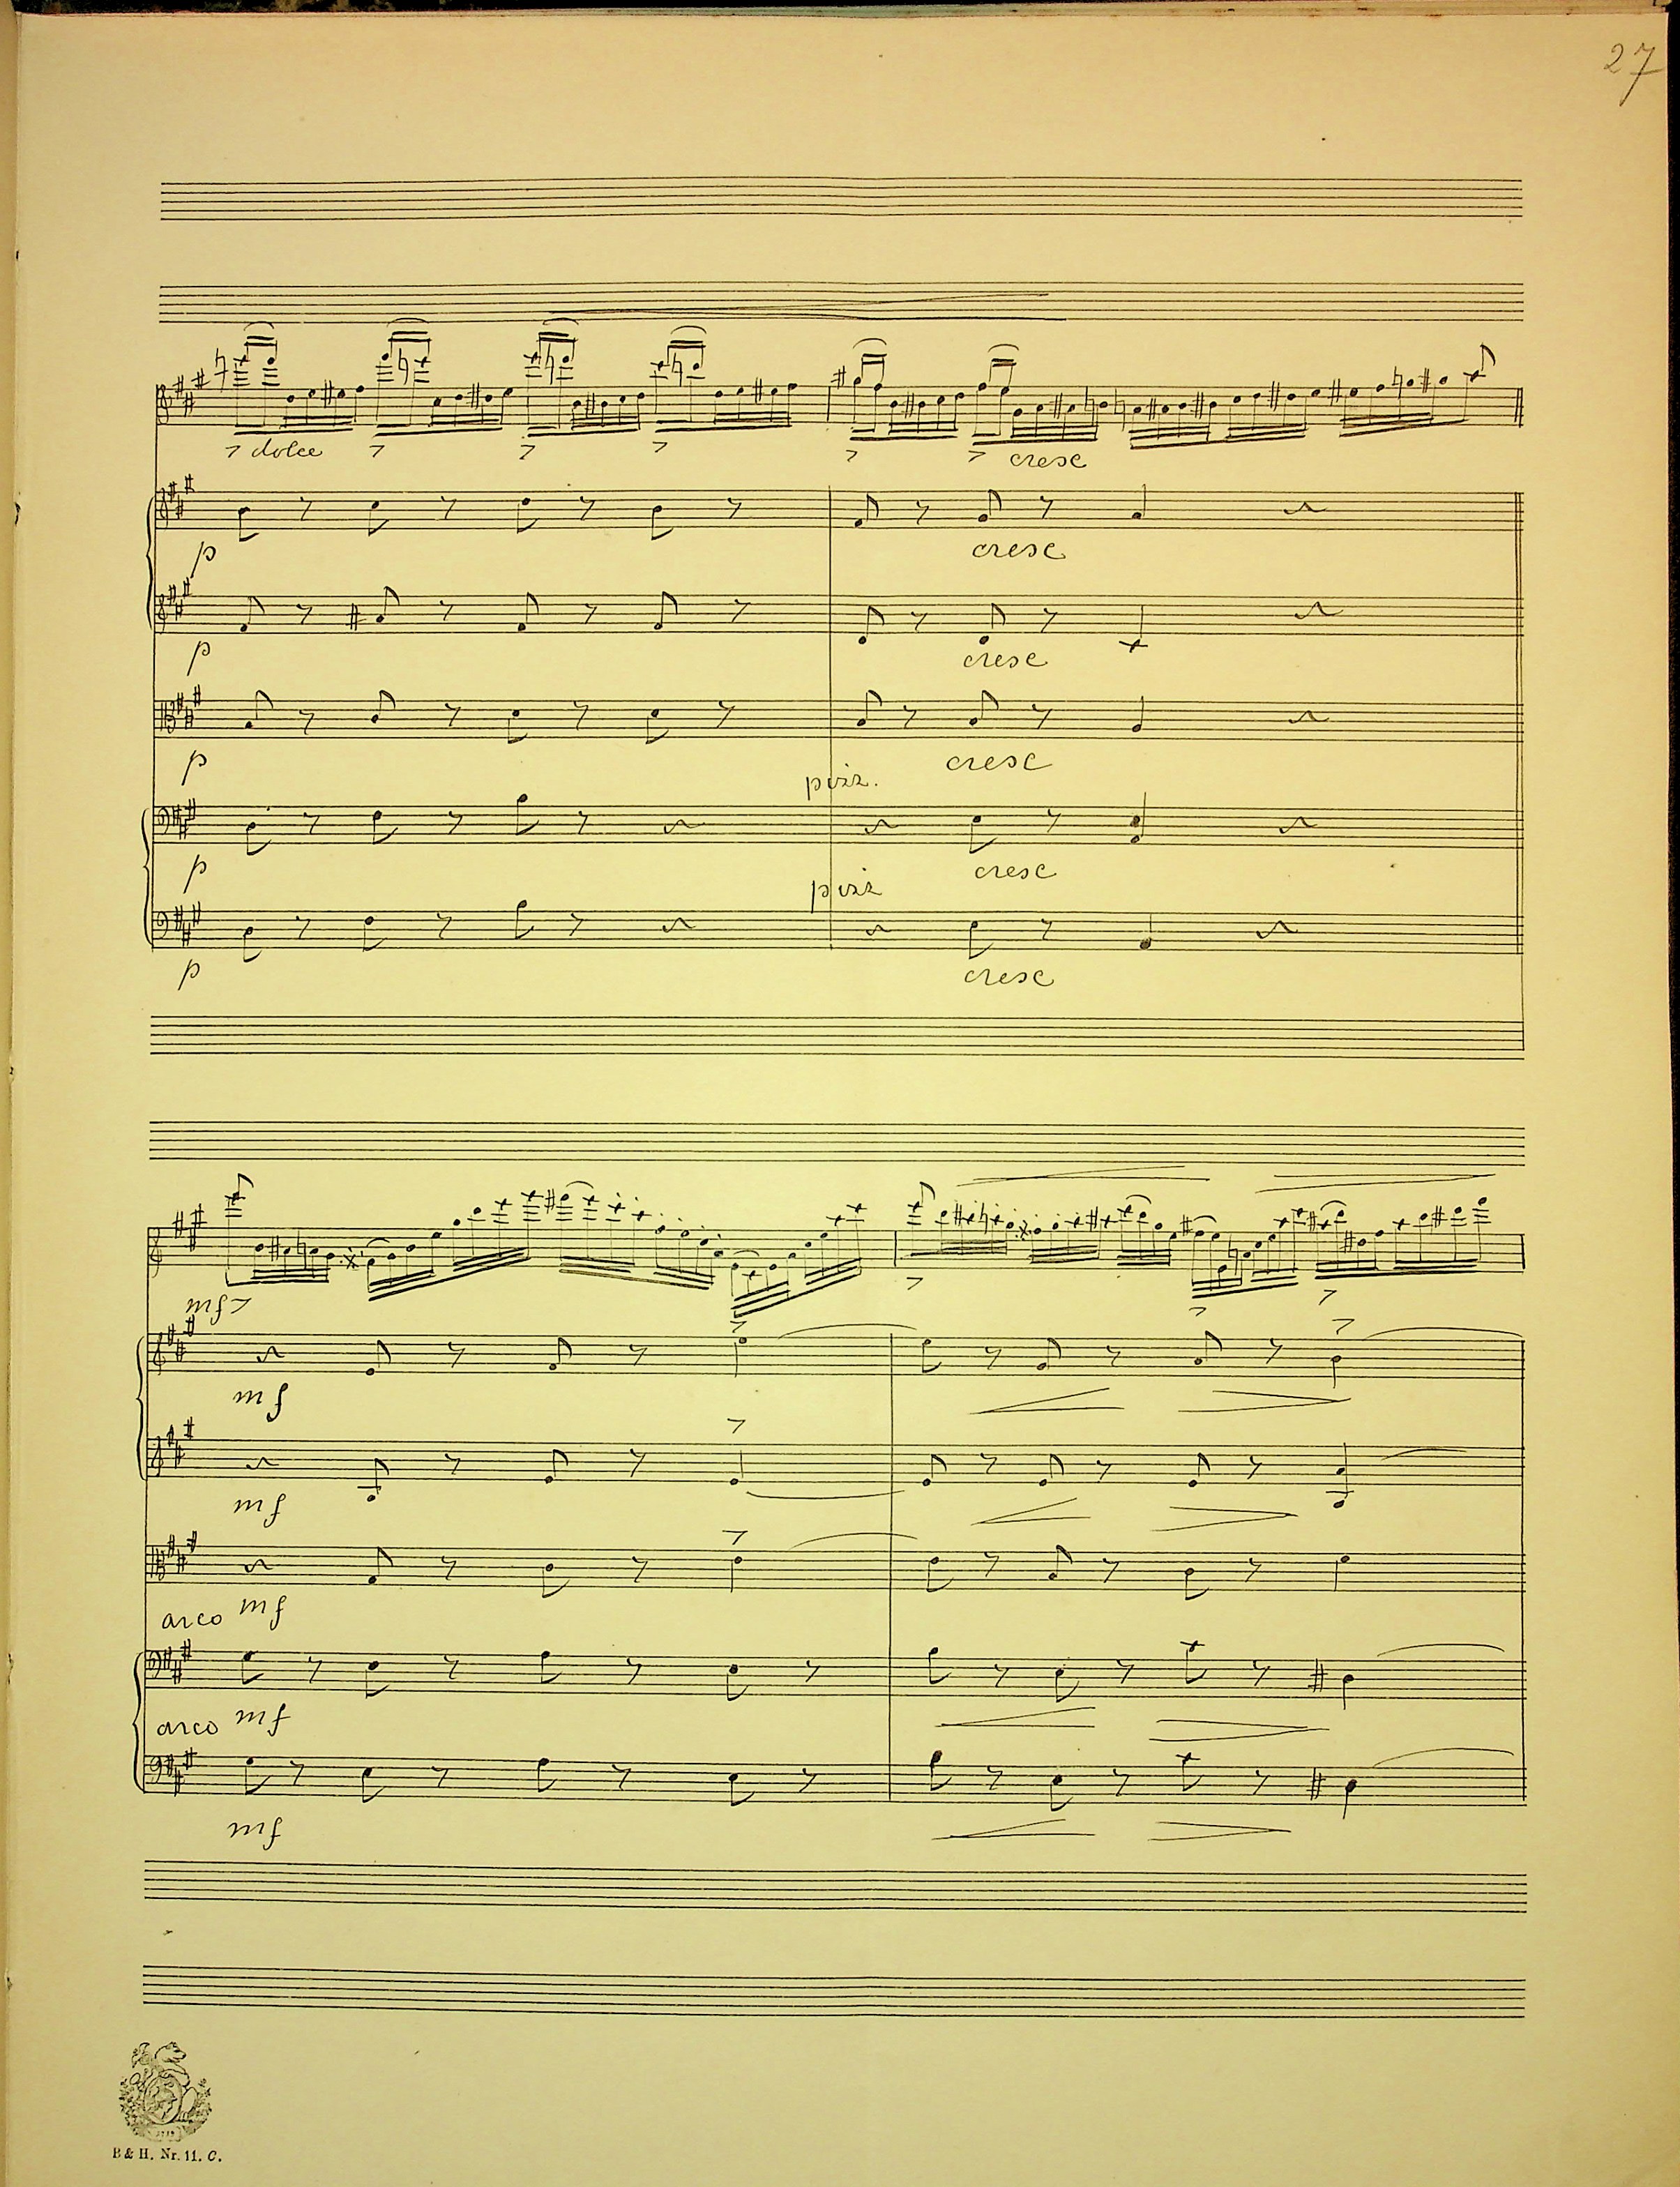 27
dolce
cresc
p
cresc
p
cresc
p
cresc
pizz.
p
cresc
pizz
p
cresc
mf
mf
mf
arco mf
arco mf
mf
1719
B & H. Nr. 11. C.